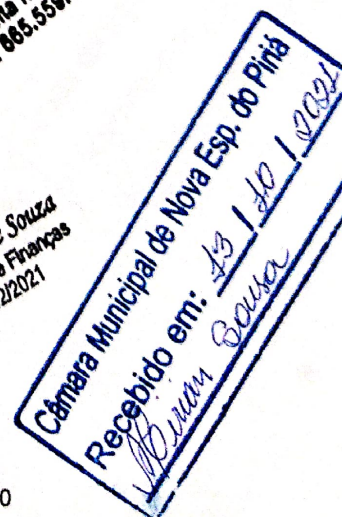 665.559
Souza
e Finanças
2/2021
Câmara Municipal de Nova Esp. do Piriá
Recebido em: 13 / 10 / 2021
Souza
0